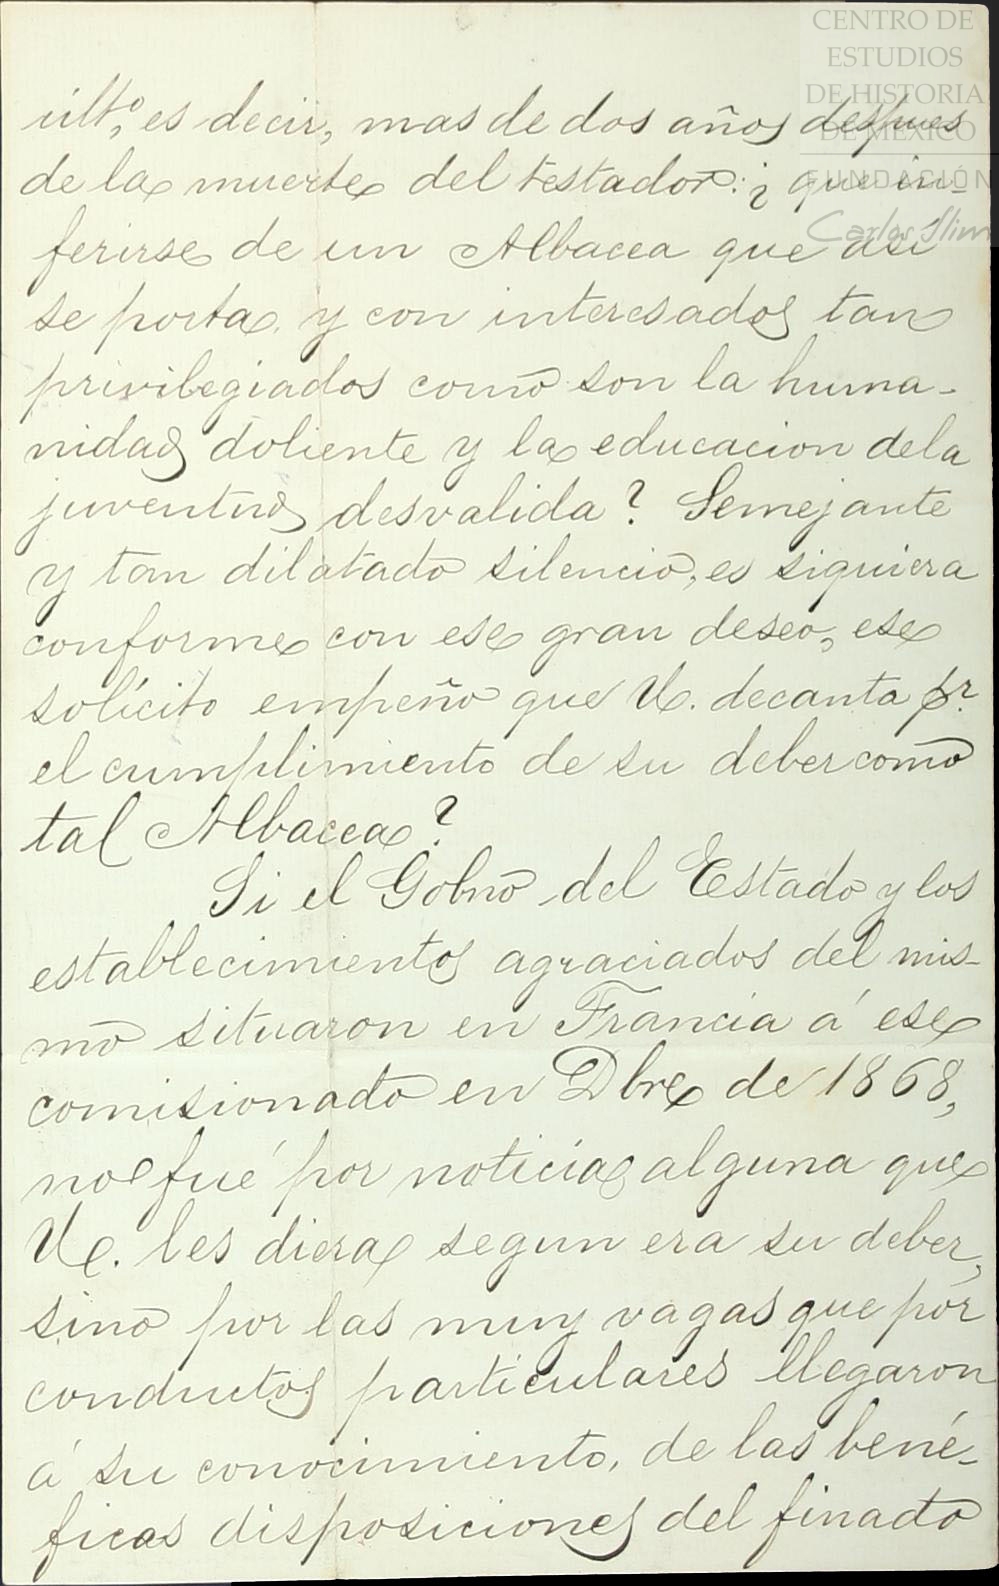 CENTRO DE
ESTUDIOS
DE HISTORIA
DE MÉXICO
FUNDACIÓN
Carlos Slim
últº, es decir, mas de dos años despues
de la muerte del testador: ¿ que in-
ferirse de un Albacea que asi
se porta y con interesados tan
privilegiados como son la huma-
nidad doliente y la educacion de la
juventud desvalida? Semejante
y tan dilatado silencio, es siquiera
conforme con ese gran deseo, ese
solícito empeño que Ve. decanta pr.
el cumplimiento de su deber como
tal Albacea?
Si el Gobno del Estado y los
establecimientos agraciados del mis-
mo situaron en Francia á ese
comisionado en Dbre de 1868,
no fué por noticia alguna que
Ve. les diera segun era su deber,
sino por las muy vagas que por
conductos particulares llegaron
á su conocimiento, de las bené-
ficas disposiciones del finado